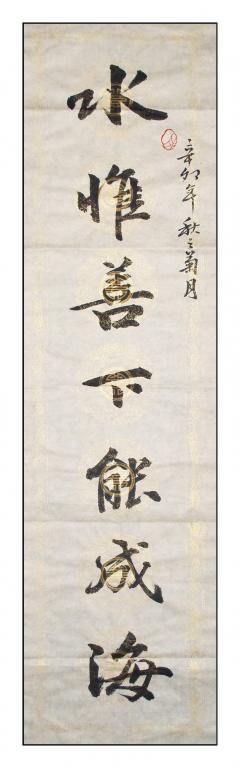 辛卯年秋之菊月
水惟善下能成海